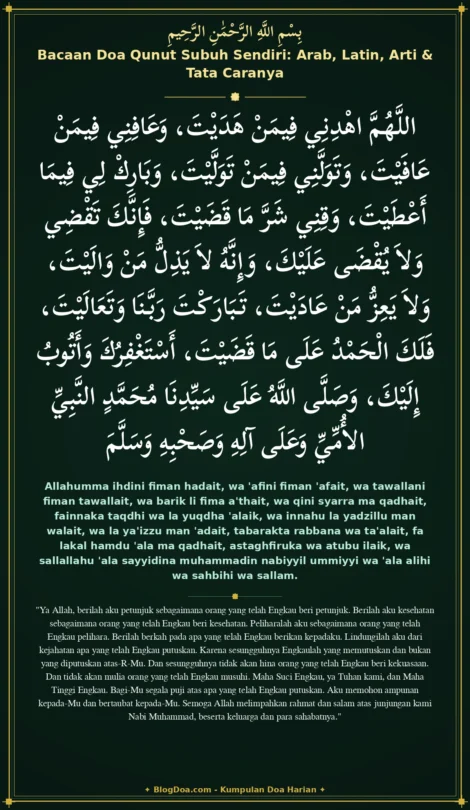 بِسْمِ اللَّهِ الرَّحْمَٰنِ الرَّحِيمِ
Bacaan Doa Qunut Subuh Sendiri: Arab, Latin, Arti &
Tata Caranya
اللَّهُمَّ اهْدِنِي فِيمَنْ هَدَيْتَ، وَعَافِنِي فِيمَنْ
عَافَيْتَ، وَتَوَلَّنِي فِيمَنْ تَوَلَّيْتَ، وَبَارِكْ لِي فِيمَا
أَعْطَيْتَ، وَقِنِي شَرَّ مَا قَضَيْتَ، فَإِنَّكَ تَقْضِي
وَلاَ يُقْضَى عَلَيْكَ، وَإِنَّهُ لاَ يَذِلُّ مَنْ وَالَيْتَ،
وَلاَ يَعِزُّ مَنْ عَادَيْتَ، تَبَارَكْتَ رَبَّنَا وَتَعَالَيْتَ،
فَلَكَ الْحَمْدُ عَلَى مَا قَضَيْتَ، أَسْتَغْفِرُكَ وَأَتُوبُ
إِلَيْكَ، وَصَلَّى اللَّهُ عَلَى سَيِّدِنَا مُحَمَّدٍ النَّبِيِّ
الأُمِّيِّ وَعَلَى آلِهِ وَصَحْبِهِ وَسَلَّمَ
Allahumma ihdini fiman hadait, wa 'afini fiman 'afait, wa tawallani
fiman tawallait, wa barik li fima a'thait, wa qini syarra ma qadhait,
fainnaka taqdhi wa la yuqdha 'alaik, wa innahu la yadzillu man
walait, wa la ya'izzu man 'adait, tabarakta rabbana wa ta'alait, fa
lakal hamdu 'ala ma qadhait, astaghfiruka wa atubu ilaik, wa
sallallahu 'ala sayyidina muhammadin nabiyyil ummiyyi wa 'ala alihi
wa sahbihi wa sallam.
"Ya Allah, berilah aku petunjuk sebagaimana orang yang telah Engkau beri petunjuk. Berilah aku kesehatan
sebagaimana orang yang telah Engkau beri kesehatan. Peliharalah aku sebagaimana orang yang telah
Engkau pelihara. Berilah berkah pada apa yang telah Engkau berikan kepadaku. Lindungilah aku dari
kejahatan apa yang telah Engkau putuskan. Karena sesungguhnya Engkaulah yang memutuskan dan bukan
yang diputuskan atas-R-Mu. Dan sesungguhnya tidak akan hina orang yang telah Engkau beri kekuasaan.
Dan tidak akan mulia orang yang telah Engkau musuhi. Maha Suci Engkau, ya Tuhan kami, dan Maha
Tinggi Engkau. Bagi-Mu segala puji atas apa yang telah Engkau putuskan. Aku memohon ampunan
kepada-Mu dan bertaubat kepada-Mu. Semoga Allah melimpahkan rahmat dan salam atas junjungan kami
Nabi Muhammad, beserta keluarga dan para sahabatnya."
✦ BlogDoa.com - Kumpulan Doa Harian ✦